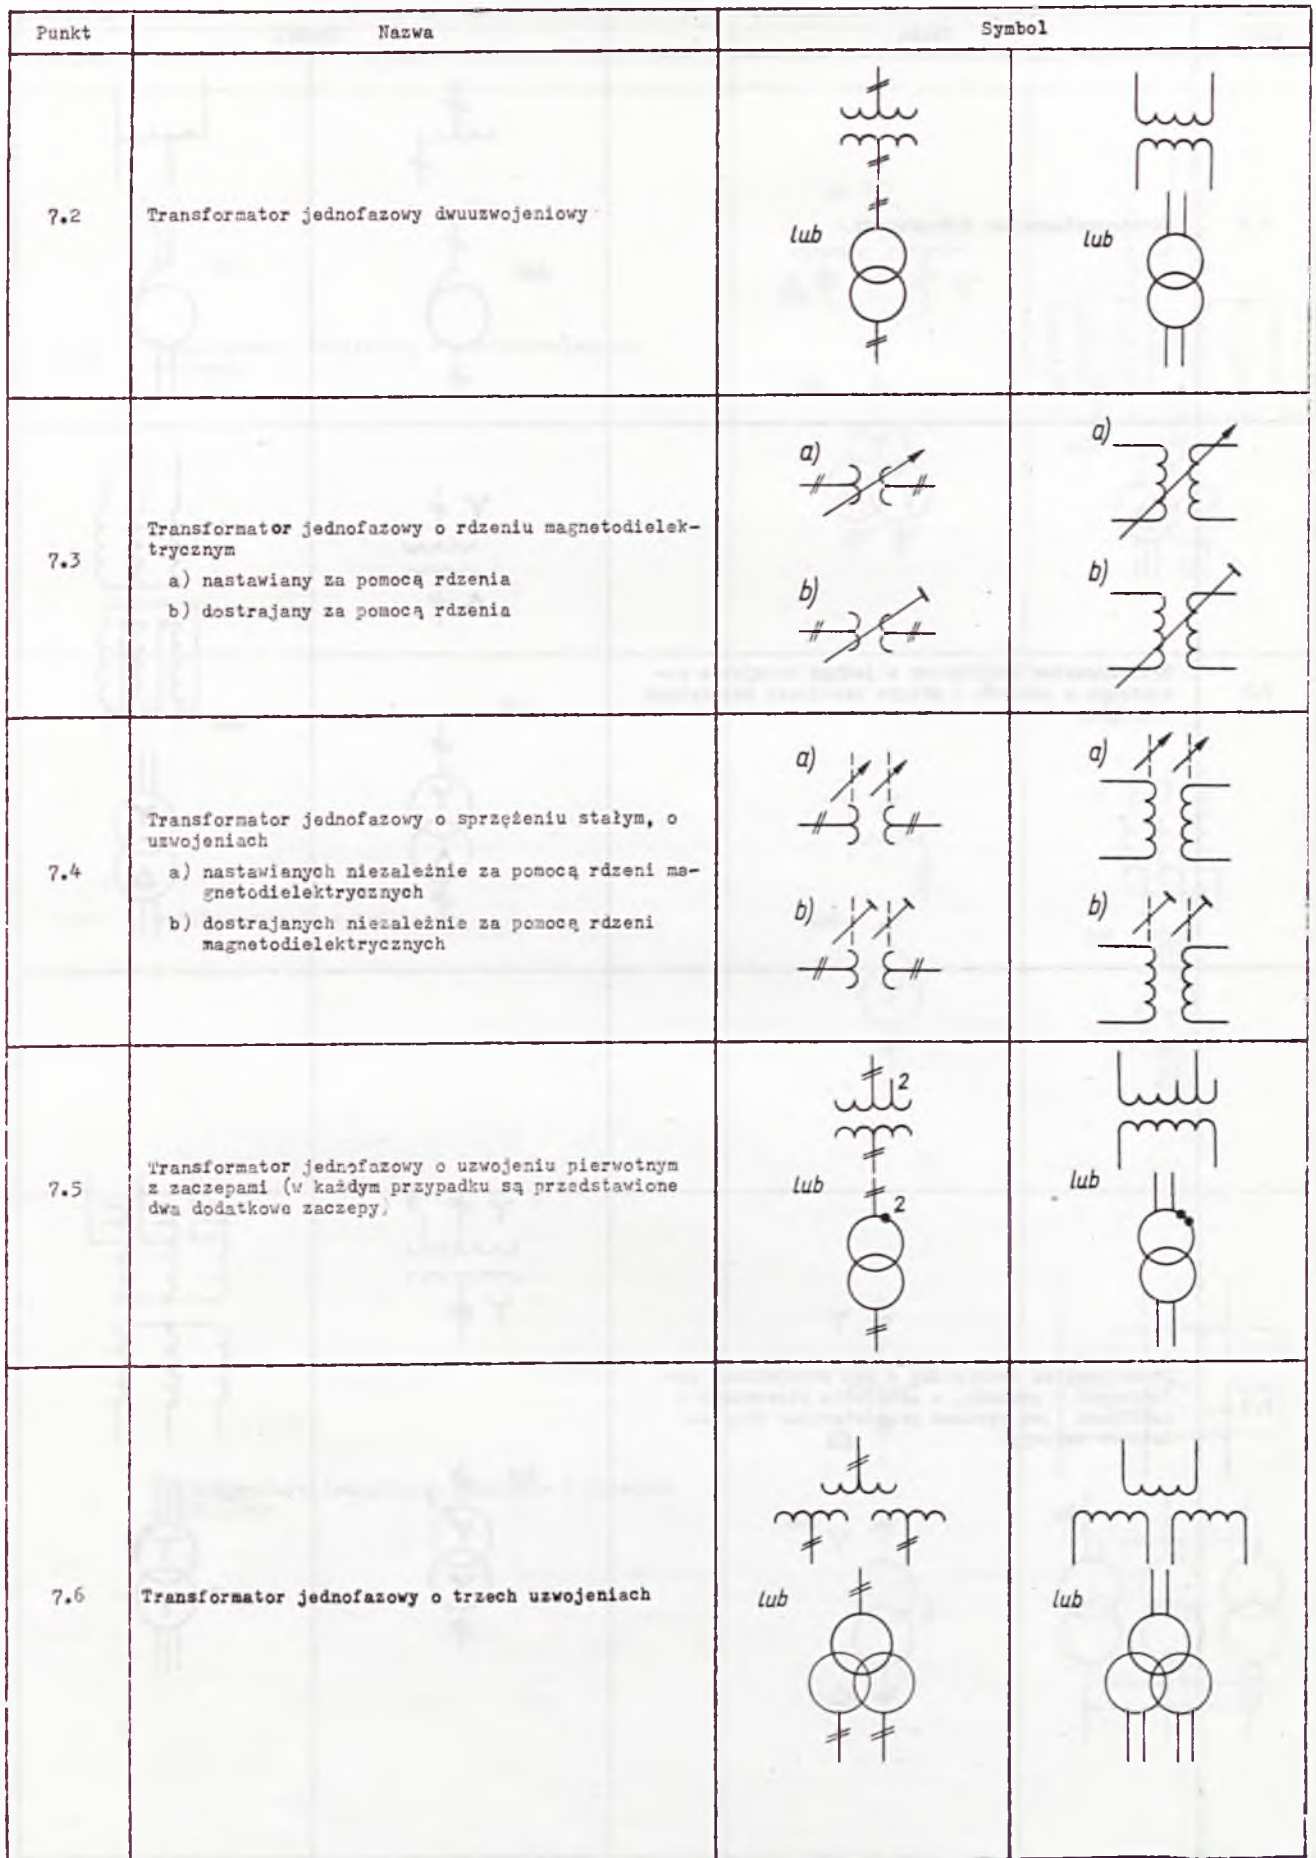 Punkt Nazwa Symbol
7.2 Transformator jednofazowy dwuuzwojeniowy
lub lub
7.3 Transformator jednofazowy o rdzeniu magnetodielek-
trycznym
a) nastawiany za pomocą rdzenia
b) dostrajany za pomocą rdzenia
a) a)
b) b)
7.4 Transformator jednofazowy o sprzężeniu stałym, o
uzwojeniach
a) nastawianych niezależnie za pomocą rdzeni ma-
gnetodielektrycznych
b) dostrajanych niezależnie za pomocą rdzeni
magnetodielektrycznych
a) a)
b) b)
7.5 Transformator jednofazowy o uzwojeniu pierwotnym
z zaczepami (w każdym przypadku są przedstawione
dwa dodatkowe zaczepy)
2
lub 2 lub
7.6 Transformator jednofazowy o trzech uzwojeniach
lub lub